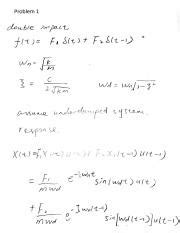 Problem 1
double impact
f(t) = F₁ δ(t) + F₂ δ(t-1)
Wn = √(k/m)
ξ = C / 2√(km) wd = wn√(1-ξ²)
assume underdamped system.
response.
X(t) =
= F₁/(m wd) e^(-ξwnt) sin(wdt) u(t)
+ F₂/(m wd) e^(-ξwn(t-1)) sin[wd(t-1)] u(t-1)